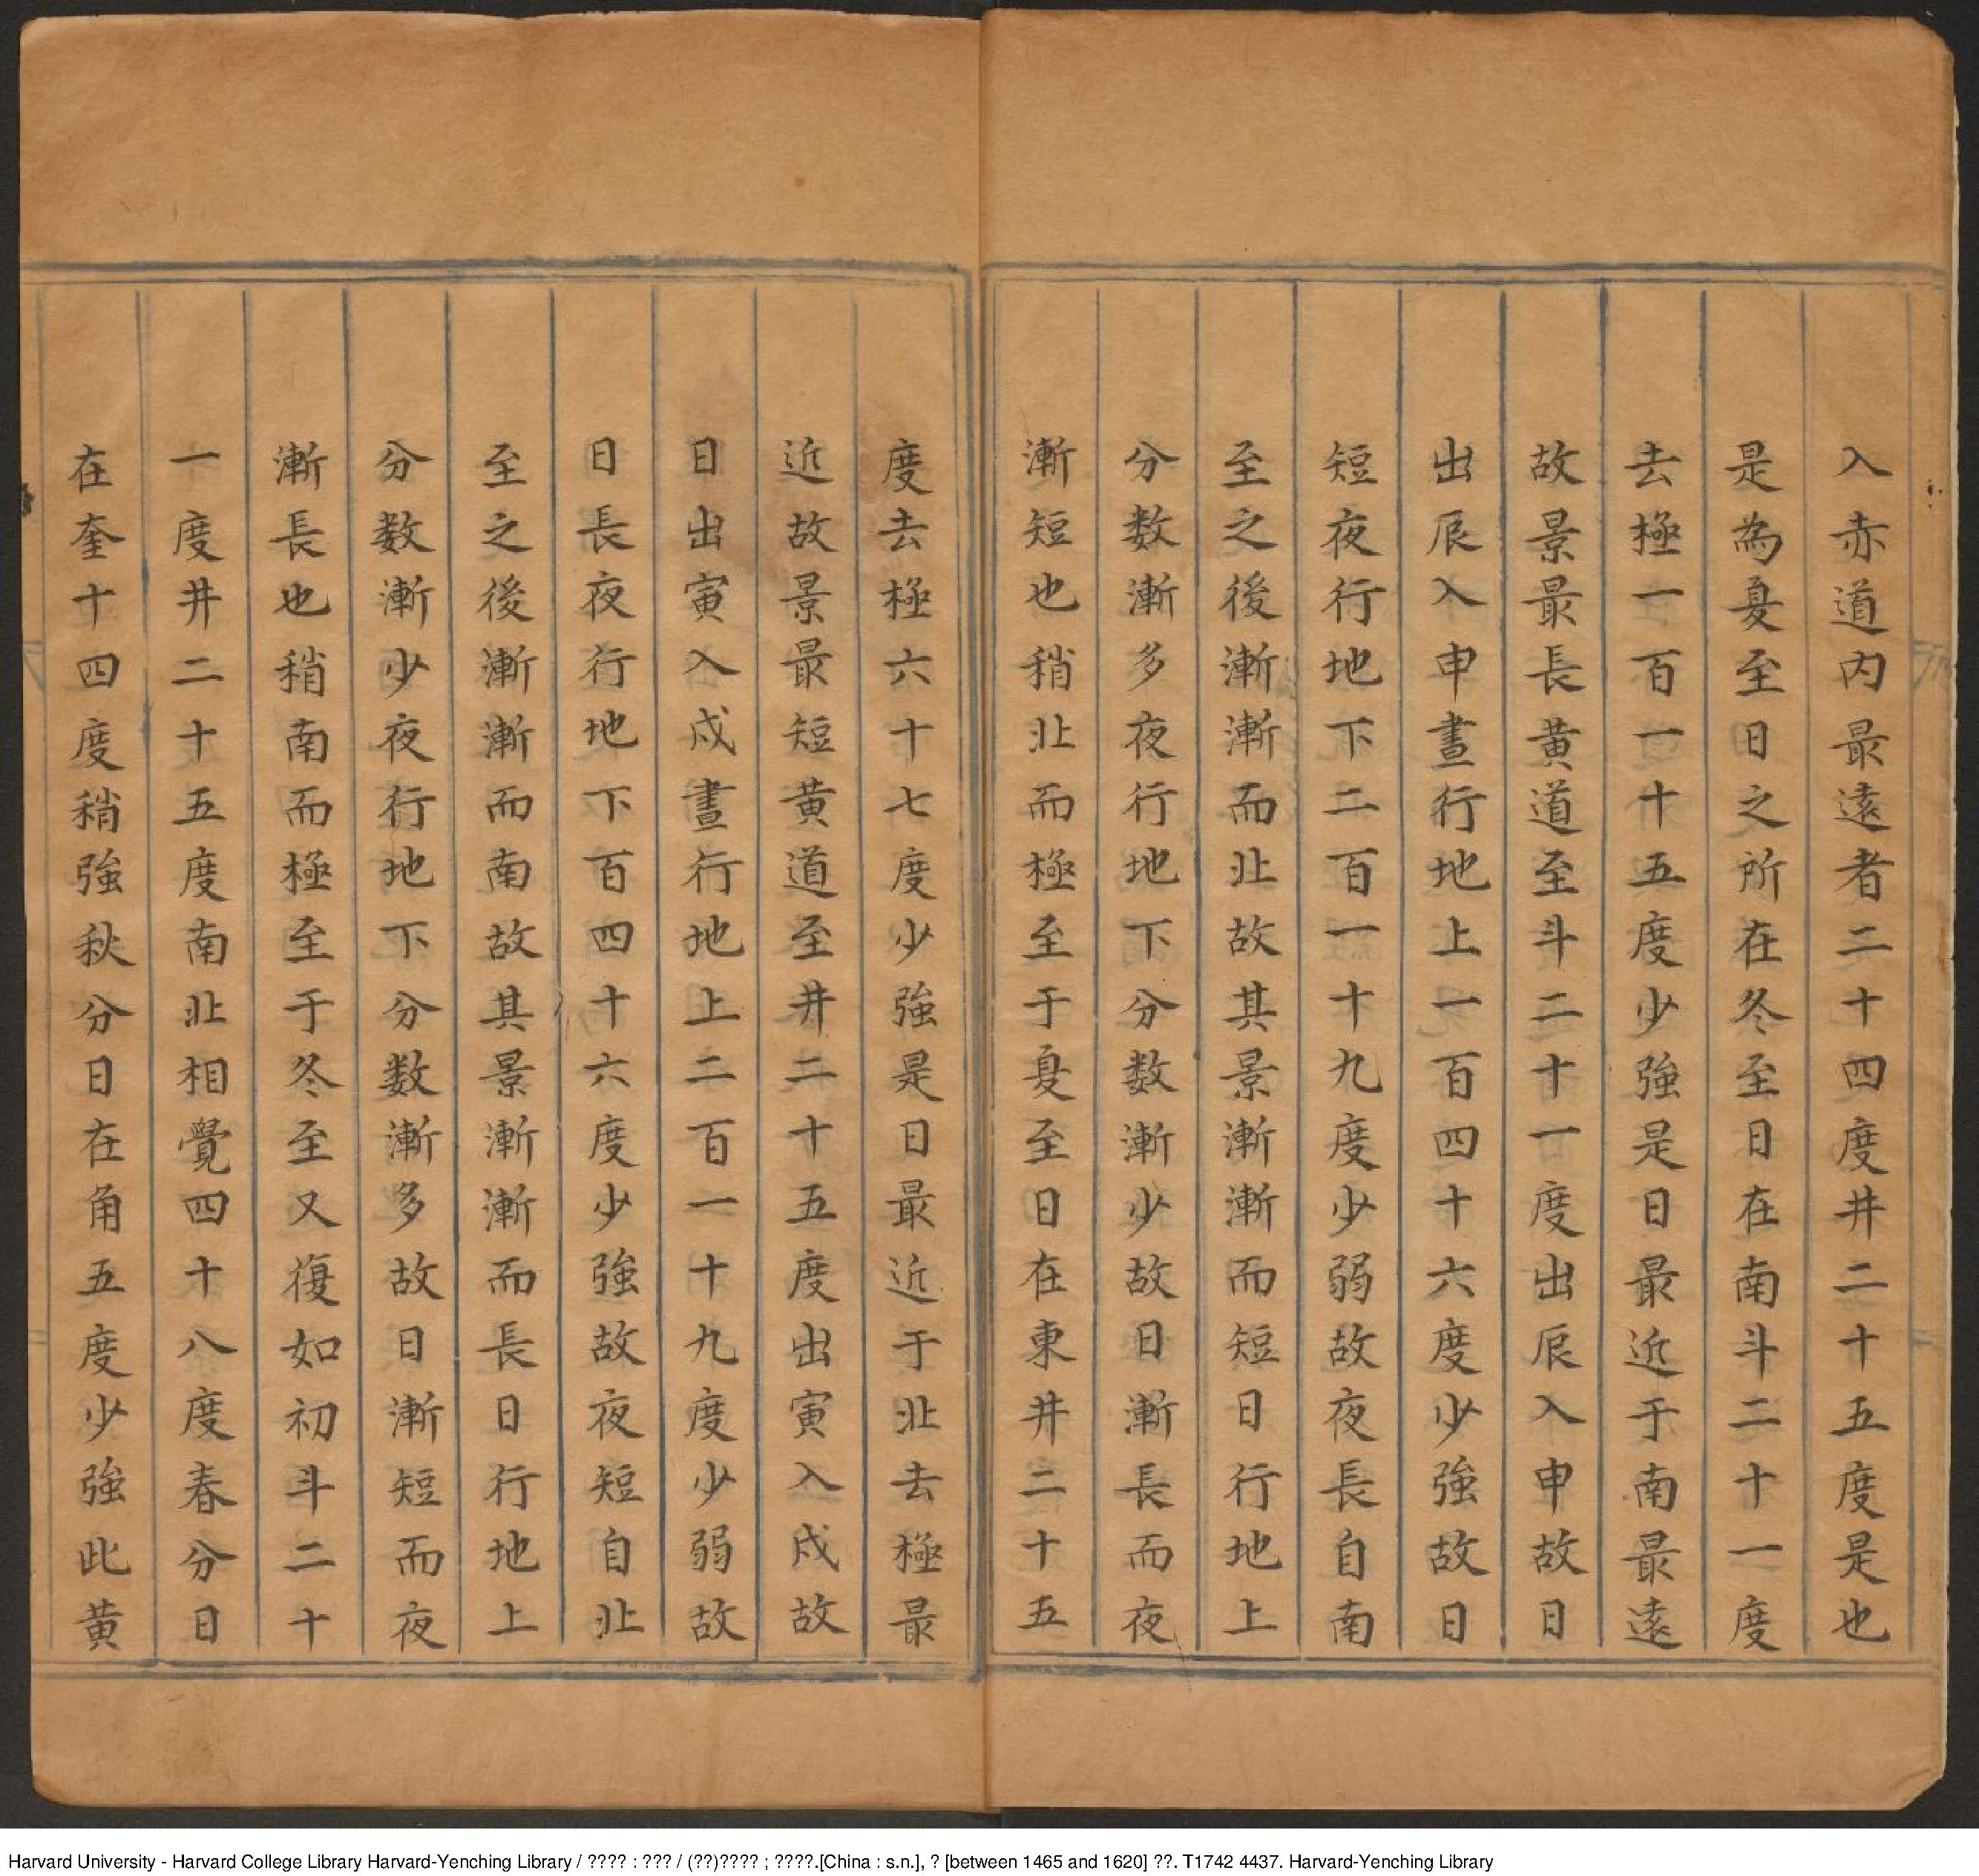 入赤道内最遠者二十四度井二十五度是也
是為夏至日之所在冬至日在南斗二十一度
去極一百一十五度少強是日最近于南最遠
故景最長黄道至斗二十一度出辰入申故日
出辰入申晝行地上一百四十六度少強故日
短夜行地下二百一十九度少弱故夜長自南
至之後漸漸而北故其景漸漸而短日行地上
分数漸多夜行地下分数漸少故日漸長而夜
漸短也稍北而極至于夏至日在東井二十五
度去極六十七度少強是日最近于北去極最
近故景最短黄道至井二十五度出寅入戍故
日出寅入戍晝行地上二百一十九度少弱故
日長夜行地下百四十六度少強故夜短自北
至之後漸漸而南故其景漸漸而長日行地上
分数漸少夜行地下分数漸多故日漸短而夜
漸長也稍南而極至于冬至又復如初斗二十
一度井二十五度南北相覺四十八度春分日
在奎十四度稍強秋分日在角五度少強此黄
Harvard University - Harvard College Library Harvard-Yenching Library / ???? : ??? / (??)???? ; ????.[China : s.n.], ? [between 1465 and 1620] ??. T1742 4437. Harvard-Yenching Library